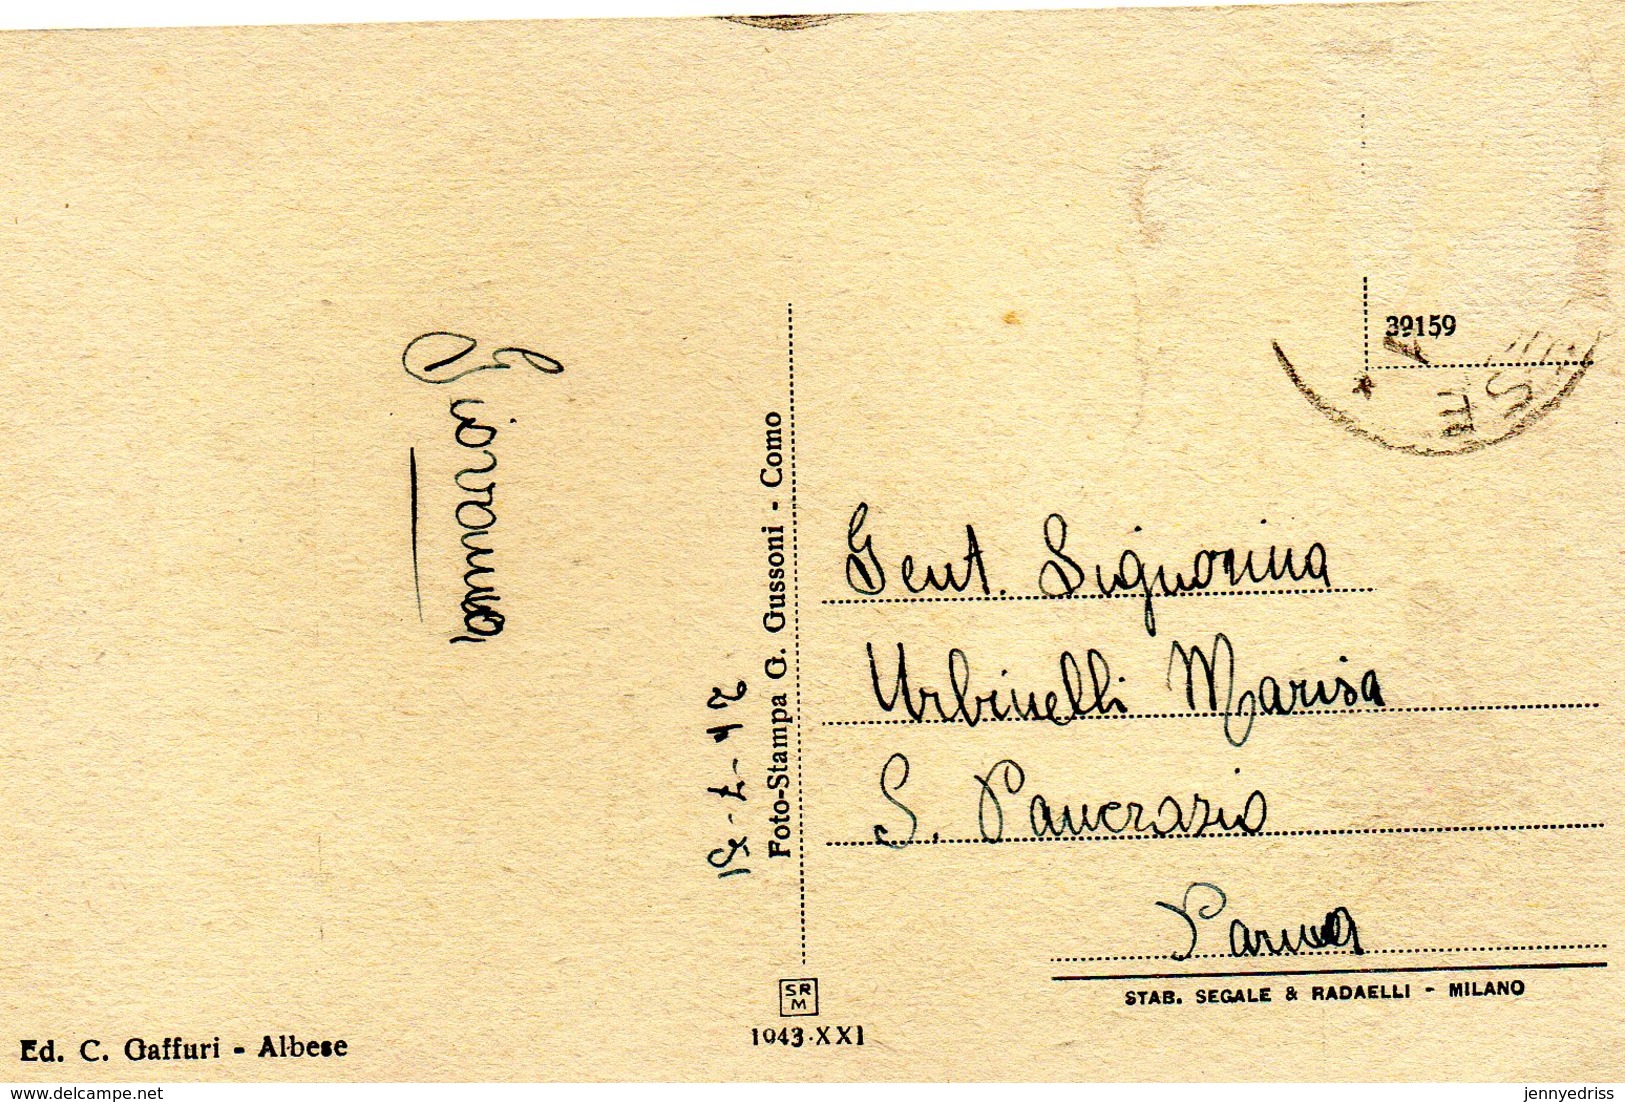 39159
SE * A
Giovanna
24-7-51
Foto-Stampa G. Gussoni - Como
Gent. Signorina
Urbinelli Marisa
S. Pancrazio
Parma
STAB. SEGALE & RADAELLI - MILANO
SR
M
1943-XXI
Ed. C. Gaffuri - Albese
www.delcampe.net
jennyedriss